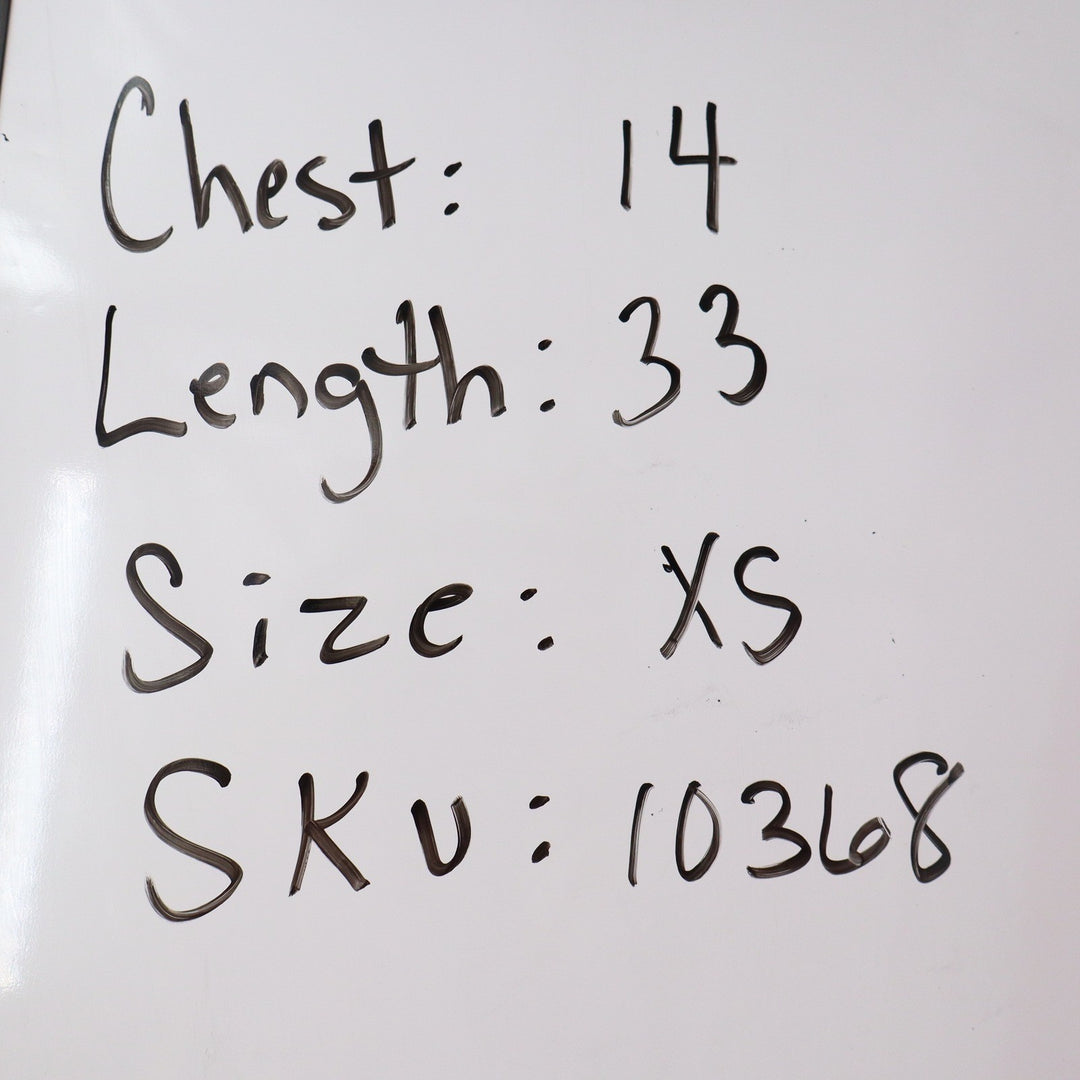 Chest: 14
Length: 33
Size: XS
SKU: 10368